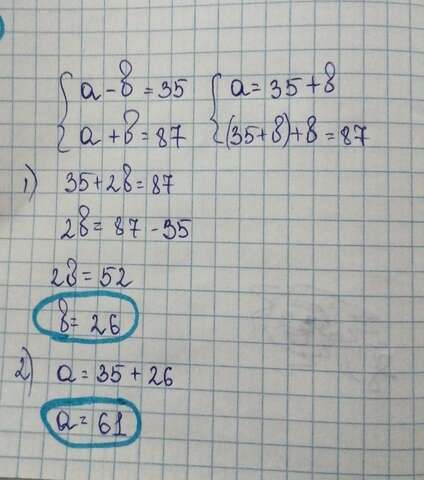 a - b = 35
a + b = 87
a = 35 + b
(35 + b) + b = 87
1) 35 + 2b = 87
2b = 87 - 35
2b = 52
b = 26
2) a = 35 + 26
a = 61